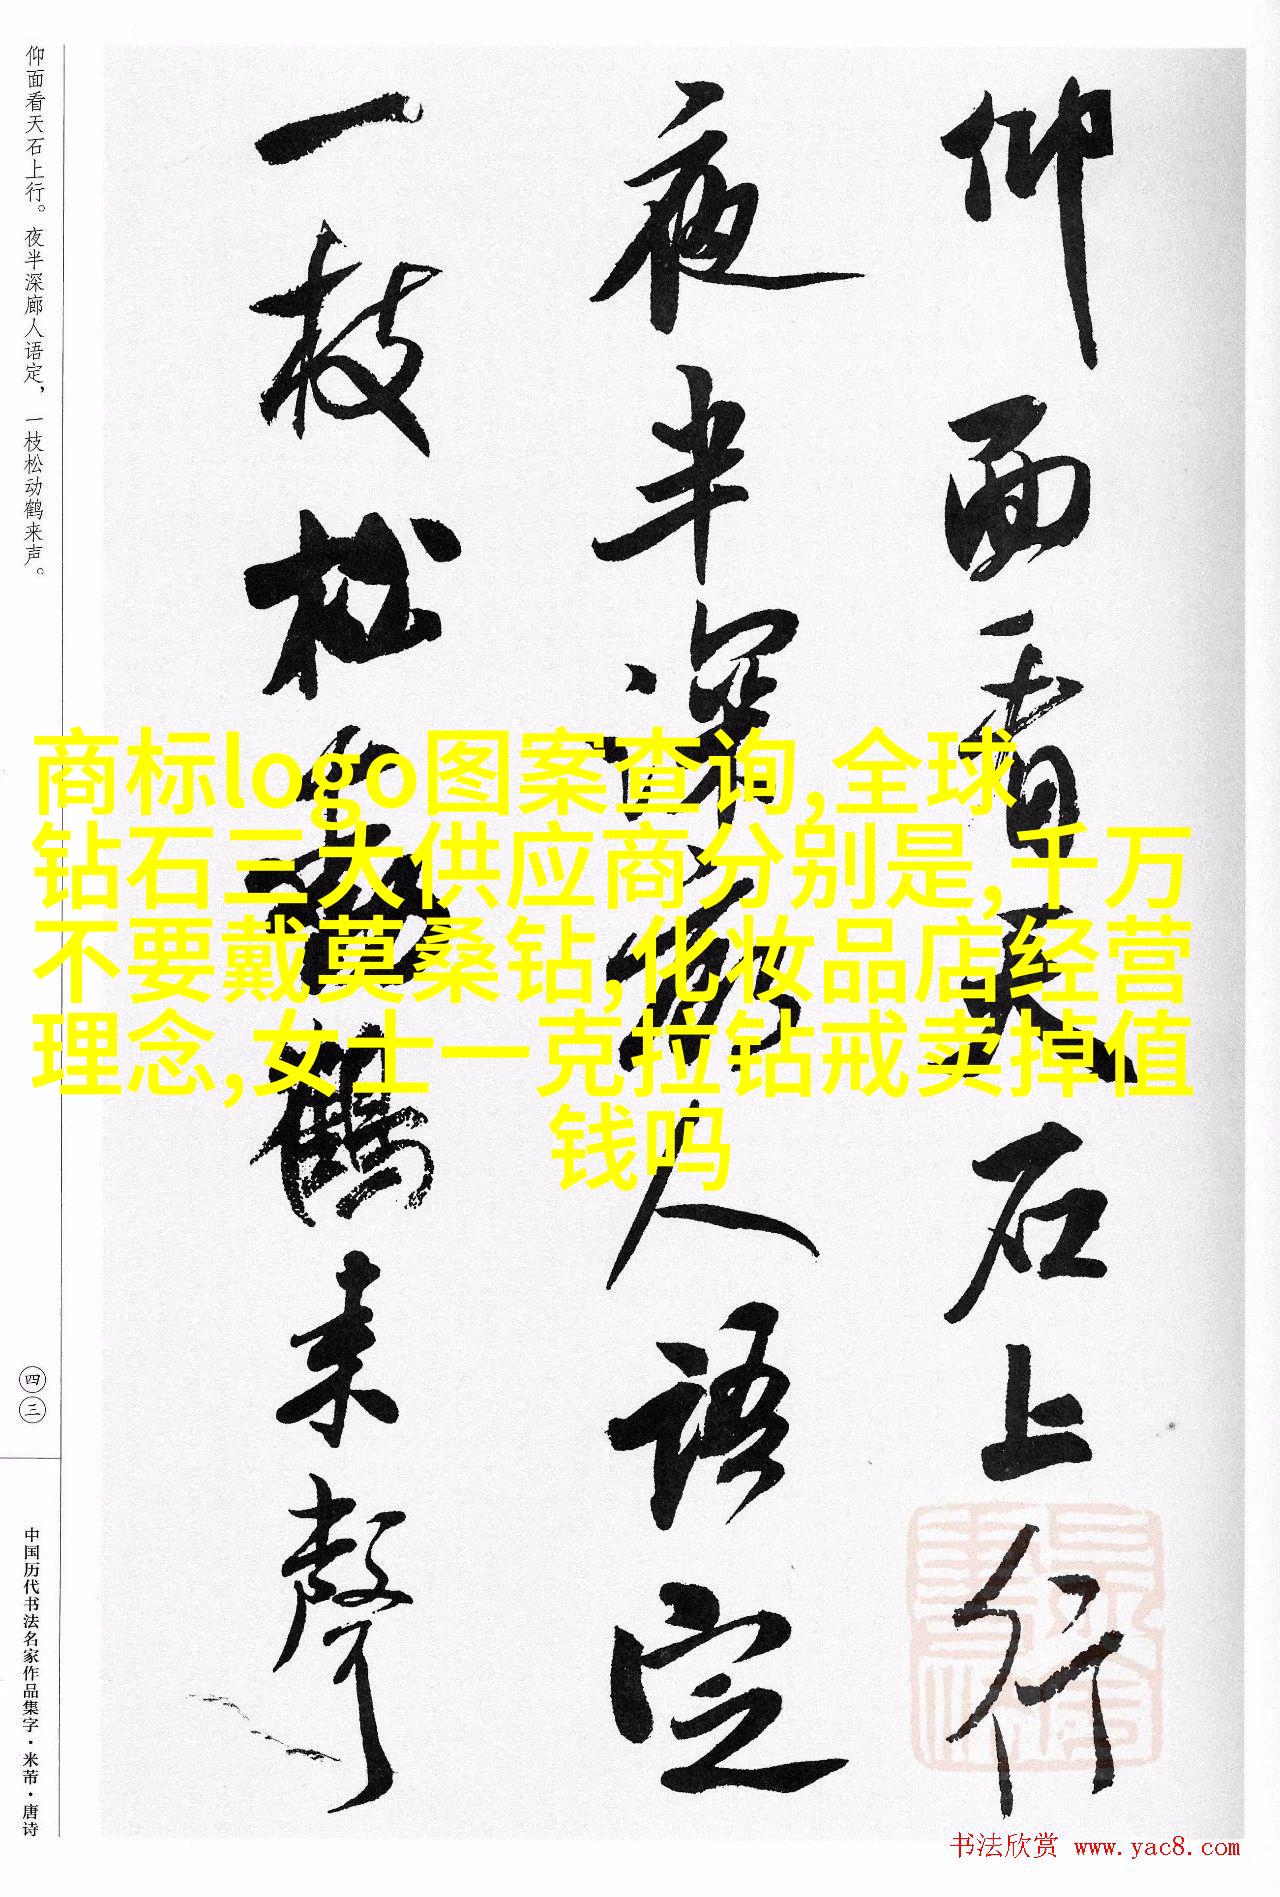 仰面看天石上行
夜半深廊人语定
一枝松动鹤来声
仰面看天石上行。夜半深廊人语定，一枝松动鹤来声。
四三
中国历代书法名家作品集字·米芾·唐诗
商标logo图案查询,全球
钻石三大供应商分别是,千万
不要戴莫桑钻,化妆品店经营
理念,女士一克拉钻戒卖掉值
钱吗
书法欣赏 www.yac8.com